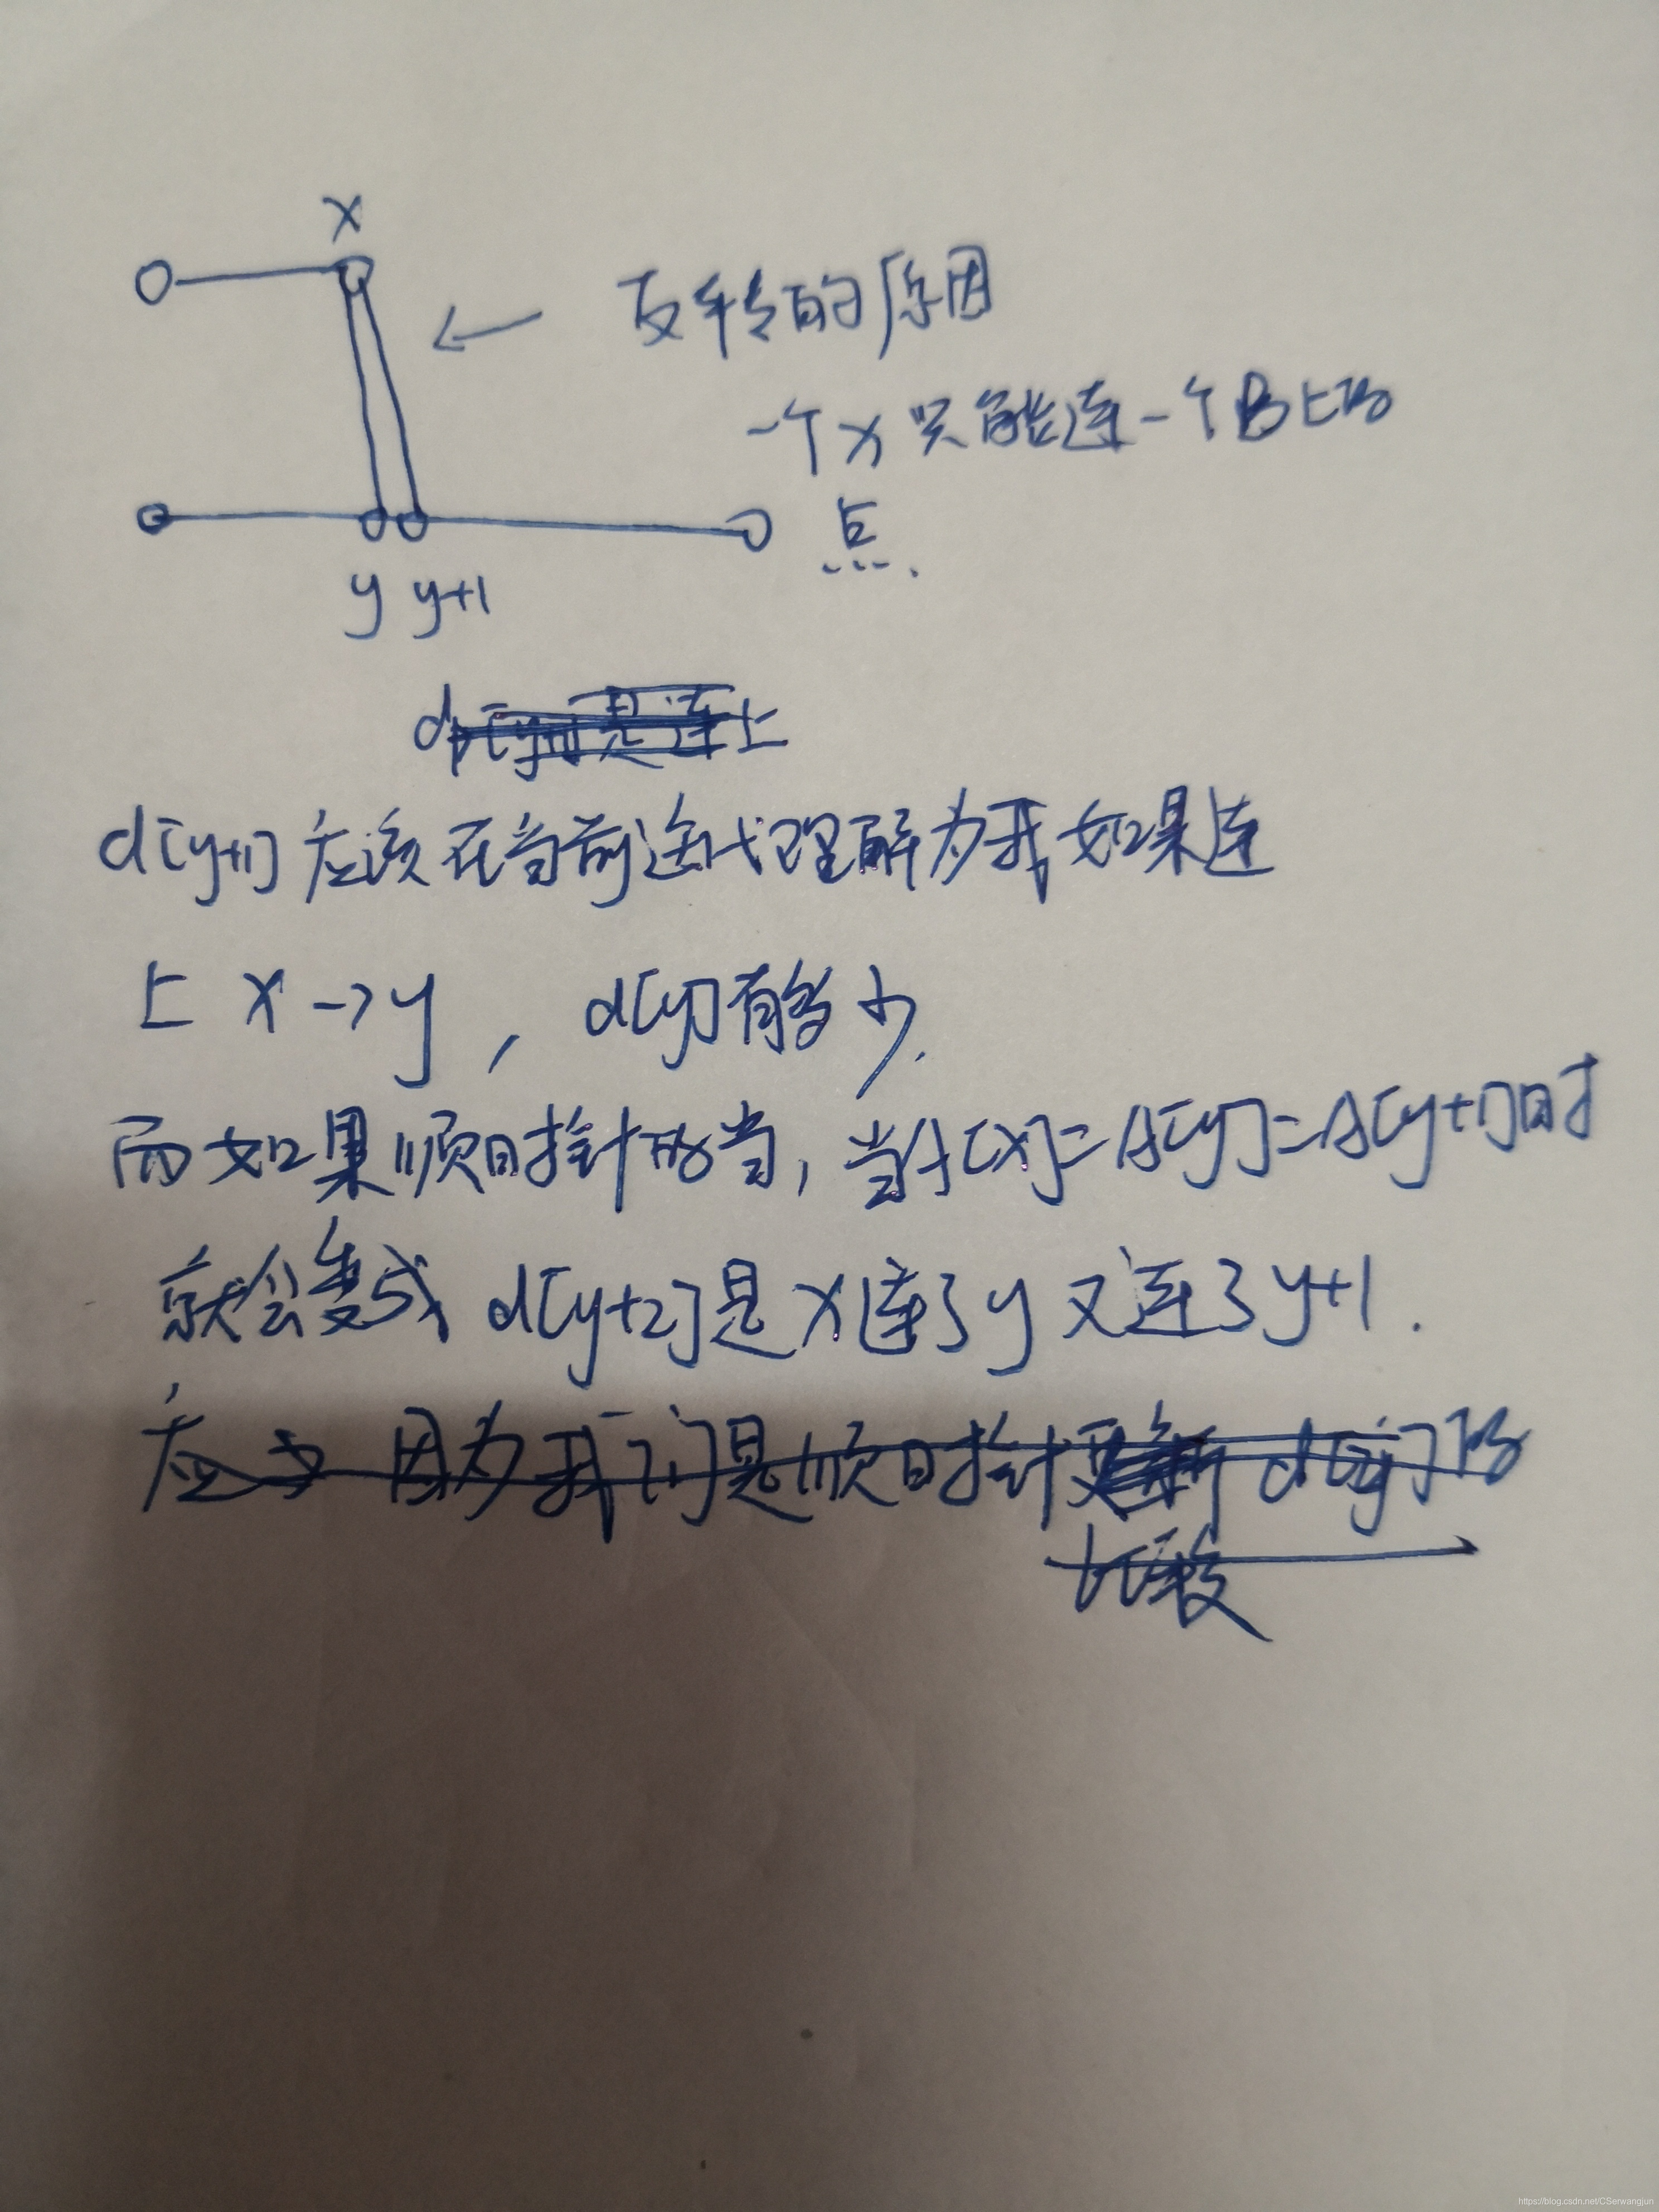 x
反转的原因
一个x只能连一个B上的
点.
y y+1
d[y+1]是连上
d[y+1]应该在当前迭代理解为我如果连
上 x->y , d[y]有多少.
而如果顺时针的当,当A[x]=A[y]=A[y+1]时
就会变成 d[y+2]是x连了y又连了y+1.
应 因为我们是顺时针更新 d[y]的
https://blog.csdn.net/CSerwangjun